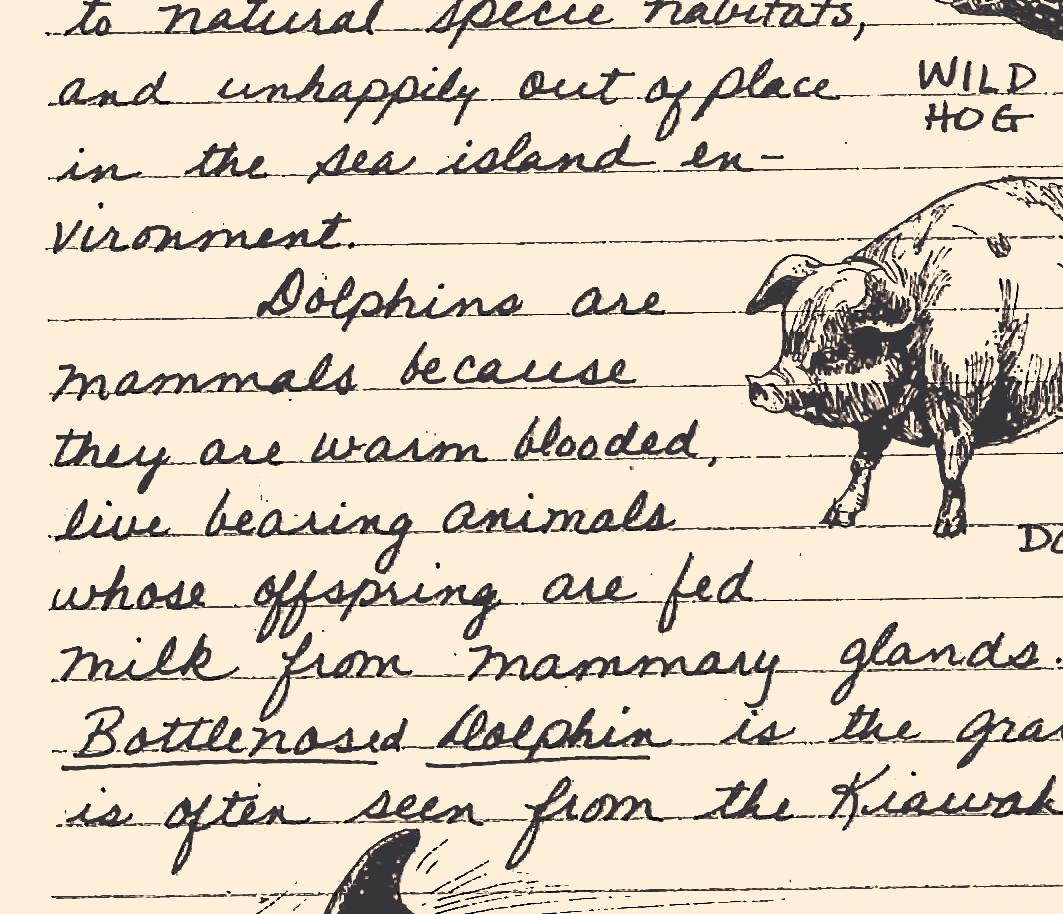 to natural specie habitats,
and unhappily out of place
in the sea island en-
vironment.
WILD
HOG
Dolphins are
mammals because
they are warm blooded,
live bearing animals
whose offspring are fed
milk from mammary glands.
Bottlenosed Dolphin is the
is often seen from the